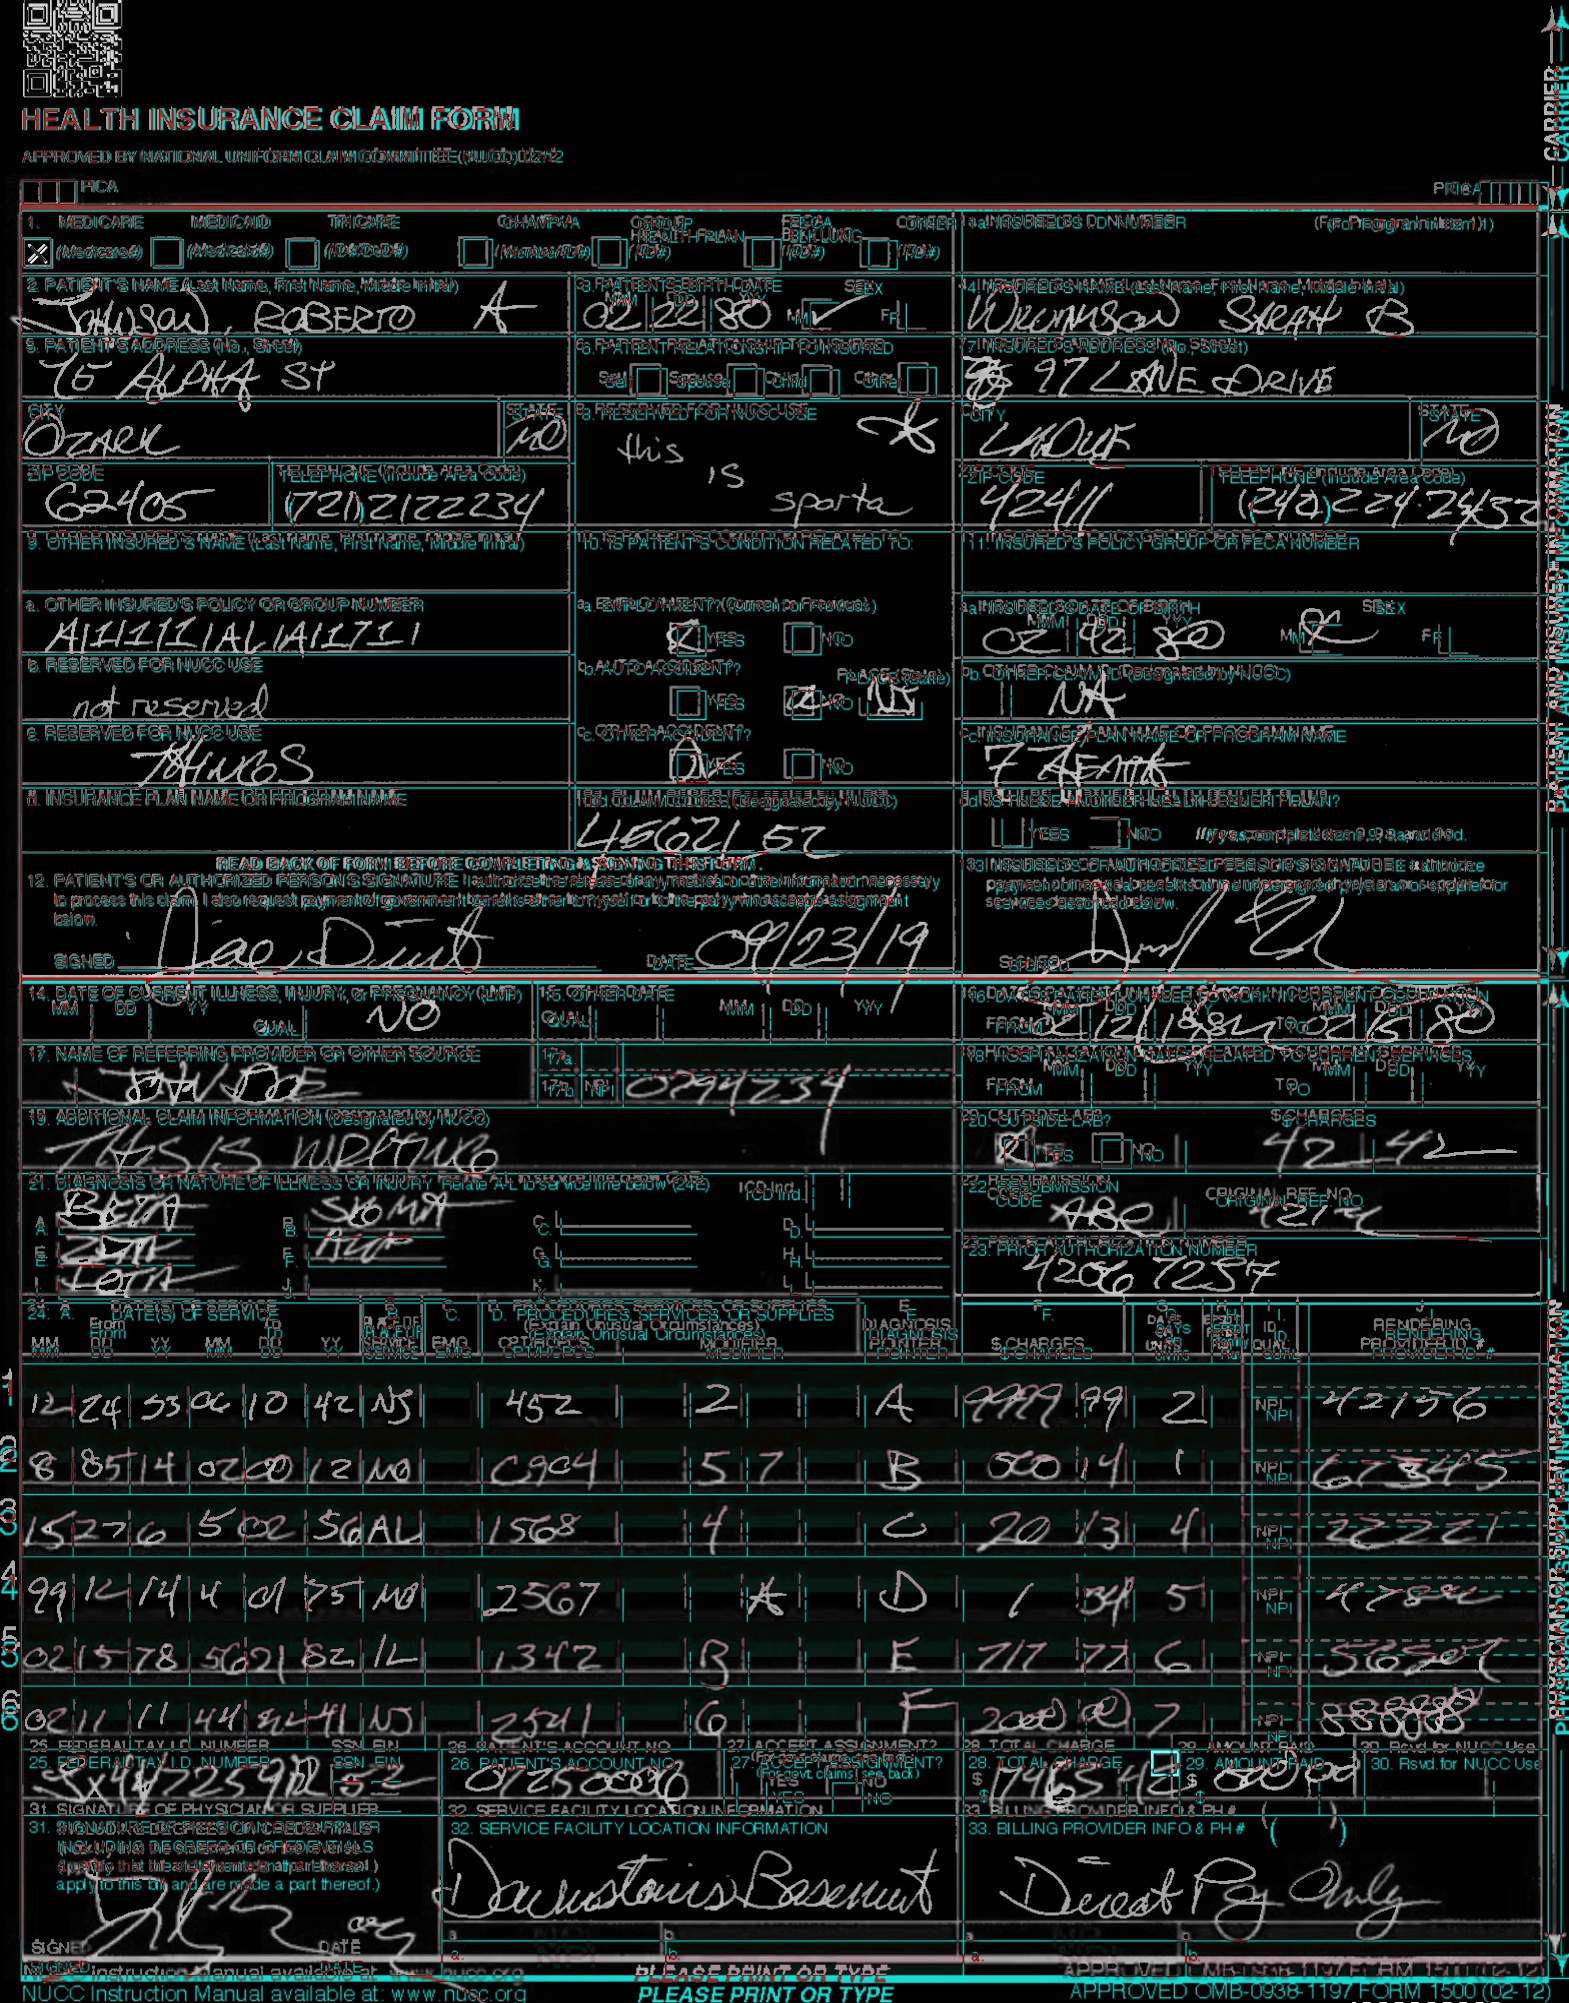 HEALTH INSURANCE CLAIM FORM
APPROVED BY NATIONAL UNIFORM CLAIM COMMITTEE (NUCC) 02/12
PICA
PICA
CARRIER
1. MEDICARE MEDICAID TRICARE CHAMPVA GROUP HEALTH PLAN FECA BLK LUNG OTHER
(Medicare#) (Medicaid#) (ID#/DoD#) (Member ID#) (ID#) (ID#) (ID#)
1a. INSURED'S I.D. NUMBER (For Program in Item 1)
2. PATIENT'S NAME (Last Name, First Name, Middle Initial)
JOHNSON, ROBERTO A
3. PATIENT'S BIRTH DATE SEX
MM DD YY
02 22 80 M F
4. INSURED'S NAME (Last Name, First Name, Middle Initial)
SARAH B
5. PATIENT'S ADDRESS (No., Street)
75 ALPHA ST
6. PATIENT RELATIONSHIP TO INSURED
Self Spouse Child Other
7. INSURED'S ADDRESS (No., Street)
97 LANE DRIVE
CITY STATE
OZARK MO
8. RESERVED FOR NUCC USE
this
is
sparta
CITY STATE
LADUE MO
ZIP CODE TELEPHONE (Include Area Code)
62405 (721) 2122234
ZIP CODE TELEPHONE (Include Area Code)
42411
9. OTHER INSURED'S NAME (Last Name, First Name, Middle Initial)
10. IS PATIENT'S CONDITION RELATED TO:
11. INSURED'S POLICY GROUP OR FECA NUMBER
a. OTHER INSURED'S POLICY OR GROUP NUMBER
a. EMPLOYMENT? (Current or Previous)
YES NO
a. INSURED'S DATE OF BIRTH SEX
MM DD YY
02 42 80 M F
b. RESERVED FOR NUCC USE
not reserved
b. AUTO ACCIDENT? PLACE (State)
YES NO NJ
b. OTHER CLAIM ID (Designated by NUCC)
NA
c. RESERVED FOR NUCC USE
THINGS
c. OTHER ACCIDENT?
YES NO
c. INSURANCE PLAN NAME OR PROGRAM NAME
d. INSURANCE PLAN NAME OR PROGRAM NAME
10d. CLAIM CODES (Designated by NUCC)
45621 52
d. IS THERE ANOTHER HEALTH BENEFIT PLAN?
YES NO If yes, complete items 9, 9a, and 9d.
READ BACK OF FORM BEFORE COMPLETING & SIGNING THIS FORM.
12. PATIENT'S OR AUTHORIZED PERSON'S SIGNATURE I authorize the release of any medical or other information necessary
to process this claim. I also request payment of government benefits either to myself or to the party who accepts assignment
below.
SIGNED DATE 09/23/19
13. INSURED'S OR AUTHORIZED PERSON'S SIGNATURE I authorize
payment of medical benefits to the undersigned physician or supplier for
services described below.
SIGNED
PATIENT AND INSURED INFORMATION
14. DATE OF CURRENT ILLNESS, INJURY, or PREGNANCY (LMP)
MM DD YY QUAL. NO
15. OTHER DATE
QUAL. MM DD YY
16. DATES PATIENT UNABLE TO WORK IN CURRENT OCCUPATION
MM DD YY MM DD YY
FROM TO
17. NAME OF REFERRING PROVIDER OR OTHER SOURCE
17a.
17b. NPI 0794234
18. HOSPITALIZATION DATES RELATED TO CURRENT SERVICES
MM DD YY MM DD YY
FROM TO
19. ADDITIONAL CLAIM INFORMATION (Designated by NUCC)
THIS IS WRITING
20. OUTSIDE LAB? $ CHARGES
YES NO 42 42
21. DIAGNOSIS OR NATURE OF ILLNESS OR INJURY Relate A-L to service line below (24E) ICD Ind.
A. BETA B. SIGMA C. D.
E. F. G. H.
I. J. K. L.
22. RESUBMISSION CODE ORIGINAL REF. NO.
23. PRIOR AUTHORIZATION NUMBER
24. A. DATE(S) OF SERVICE B. PLACE OF SERVICE C. EMG D. PROCEDURES, SERVICES, OR SUPPLIES E. DIAGNOSIS POINTER F. $ CHARGES G. DAYS OR UNITS H. I. ID. QUAL. J. RENDERING PROVIDER ID. #
From To (Explain Unusual Circumstances)
MM DD YY MM DD YY CPT/HCPCS MODIFIER
1 12 24 53 06 10 42 NJ 452 2 A 9999 99 2 NPI 42156
2 8 85 14 02 00 12 MO 0904 5 7 B 500 14 1 NPI 67345
3 15 27 6 5 02 56 AL 1568 4 C 20 13 4 NPI 22221
4 99 12 14 4 01 75 MO 2567 A D 1 34 5 NPI
5 02 15 78 56 21 82 IL 1342 B E 717 77 6 NPI
6 02 11 11 44 41 NJ 2541 6 F 2000 00 7 NPI 88888
25. FEDERAL TAX I.D. NUMBER SSN EIN
26. PATIENT'S ACCOUNT NO.
27. ACCEPT ASSIGNMENT?
(For govt. claims, see back)
YES NO
28. TOTAL CHARGE
$
29. AMOUNT PAID
$
30. Rsvd for NUCC Use
31. SIGNATURE OF PHYSICIAN OR SUPPLIER
INCLUDING DEGREES OR CREDENTIALS
(I certify that the statements on the reverse
apply to this bill and are made a part thereof.)
SIGNED DATE
32. SERVICE FACILITY LOCATION INFORMATION
Downstairs Basement
a. b.
33. BILLING PROVIDER INFO & PH # ( )
Direct Pay Only
a. b.
PHYSICIAN OR SUPPLIER INFORMATION
NUCC Instruction Manual available at: www.nucc.org
PLEASE PRINT OR TYPE
APPROVED OMB-0938-1197 FORM 1500 (02-12)